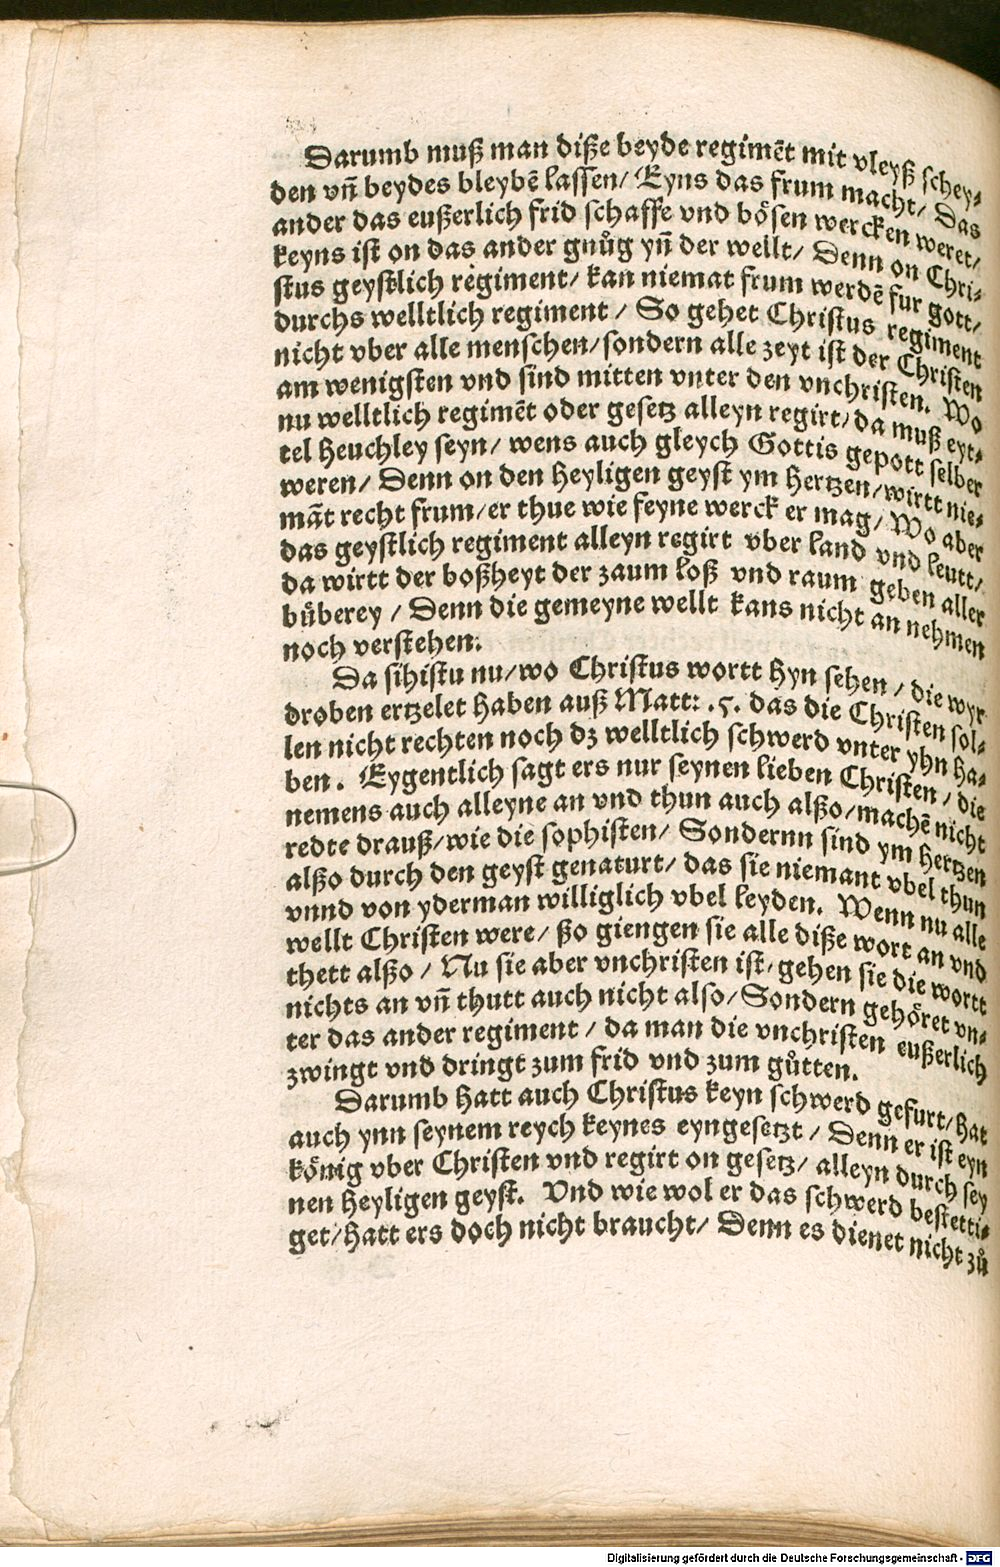 Darumb muß man diße beyde regimēt mit vleyß schey⸗
den vñ beydes bleybē lassen/ Eyns das frum macht/ Das
ander das eußerlich frid schaffe vnd bösen wercken weret/
keyns ist on das ander gnůg yñ der wellt/ Denn on Chri⸗
stus geystlich regiment/ kan niemat frum werdē fur gott/
durchs welltlich regiment / So gehet Christus regiment
nicht vber alle menschen/sondern alle zeyt ist der Christen
am wenigsten vnd sind mitten vnter den vnchristen. Wo
nu welltlich regimēt oder gesetz alleyn regirt/da muß eyt⸗
tel heuchley seyn/ wens auch gleych Gottis gepott selber
weren/ Denn on den heyligen geyst ym hertzen/wirtt nie⸗
māt recht frum/er thue wie feyne werck er mag/ Wo aber
das geystlich regiment alleyn regirt vber land vnd leutt/
da wirtt der boßheyt der zaum loß vnd raum geben aller
büberey / Denn die gemeyne wellt kans nicht an nehmen
noch verstehen.
Da sihistu nu/wo Christus wortt hyn sehen / die wyr
droben ertzelet haben auß Matt: .5. das die Christen sol⸗
len nicht rechten noch dz welltlich schwerd vnter yhn ha⸗
ben. Eygentlich sagt ers nur seynen lieben Christen / die
nemens auch alleyne an vnd thun auch alßo/machē nicht
redte drauß/wie die sophisten/ Sondernn sind ym hertzen
alßo durch den geyst genaturt/ das sie niemant vbel thun
vnnd von yderman williglich vbel leyden. Wenn nu alle
wellt Christen were/ ßo giengen sie alle diße wort an vnd
thett alßo / Nu sie aber vnchristen ist/gehen sie die wortt
nichts an vñ thutt auch nicht also/Sondern gehöret vn⸗
ter das ander regiment / da man die vnchristen eußerlich
zwingt vnd dringt zum frid vnd zum gůtten.
Darumb hatt auch Christus keyn schwerd gefurt/hat
auch ynn seynem reych keynes eyngesetzt / Denn er ist eyn
könig vber Christen vnd regirt on gesetz/ alleyn durch sey
nen heyligen geyst. Vnd wie wol er das schwerd bestetti⸗
get/hatt ers doch nicht braucht/ Denn es dienet nicht zů
Digitalisierung gefördert durch die Deutsche Forschungsgemeinschaft - DFG